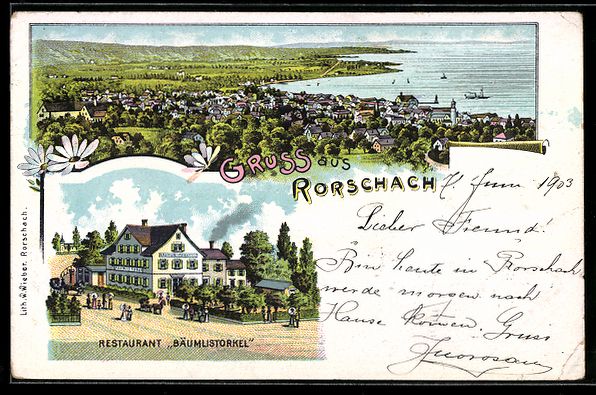 GRUSS aus
RORSCHACH
7. Juni 1903
Lieber Freund!
Bin heute in Rorschach
werde morgen nach
Hause kommen. Gruss
RESTAURANT „BÄUMLISTORKEL"
Lith. W. Wieber. Rorschach.